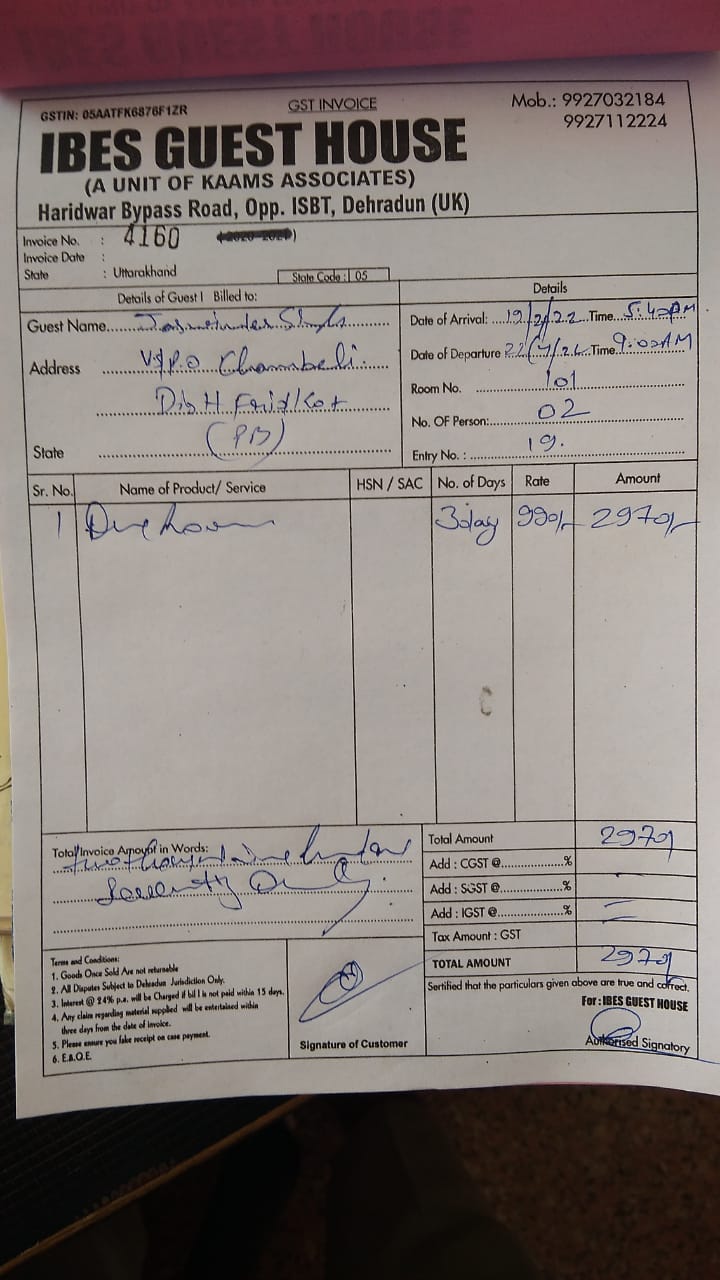 GSTIN: 05AATFK6876F1ZR
GST INVOICE
Mob.: 9927032184
9927112224
IBES GUEST HOUSE
(A UNIT OF KAAMS ASSOCIATES)
Haridwar Bypass Road, Opp. ISBT, Dehradun (UK)
Invoice No. : 4160
Invoice Date :
State : Uttarakhand
State Code : 05
Details of Guest | Billed to:
Details
Guest Name
Address V.P.O Chambeli.
Faridkot
(PB)
State
Date of Arrival: 19/2/22 Time 5:40PM
Date of Departure Time 9:00AM
Room No. 101
No. OF Person: 02
Entry No. : 19.
Sr. No. Name of Product/ Service HSN / SAC No. of Days Rate Amount
1 One Room 3day 990/- 2970/-
Total Invoice Amount in Words:
two thousand nine hundred
Seventy Only.
Total Amount 2970/
Add : CGST @ %
Add : SGST @ %
Add : IGST @ %
Tax Amount : GST
TOTAL AMOUNT 2970/
Sertified that the particulars given above are true and correct.
For : IBES GUEST HOUSE
Authorised Signatory
Terms and Conditions:
1. Goods Once Sold Are not returnable
2. All Disputes Subject to Dehradun Jurisdiction Only.
3. Interest @ 24% p.a. will be Charged if bil l is not paid within 15 days.
4. Any claim regarding material supplied will be entertained within
three days from the date of invoice.
5. Please ensure you take receipt on case payment.
6. E.&.O.E.
Signature of Customer